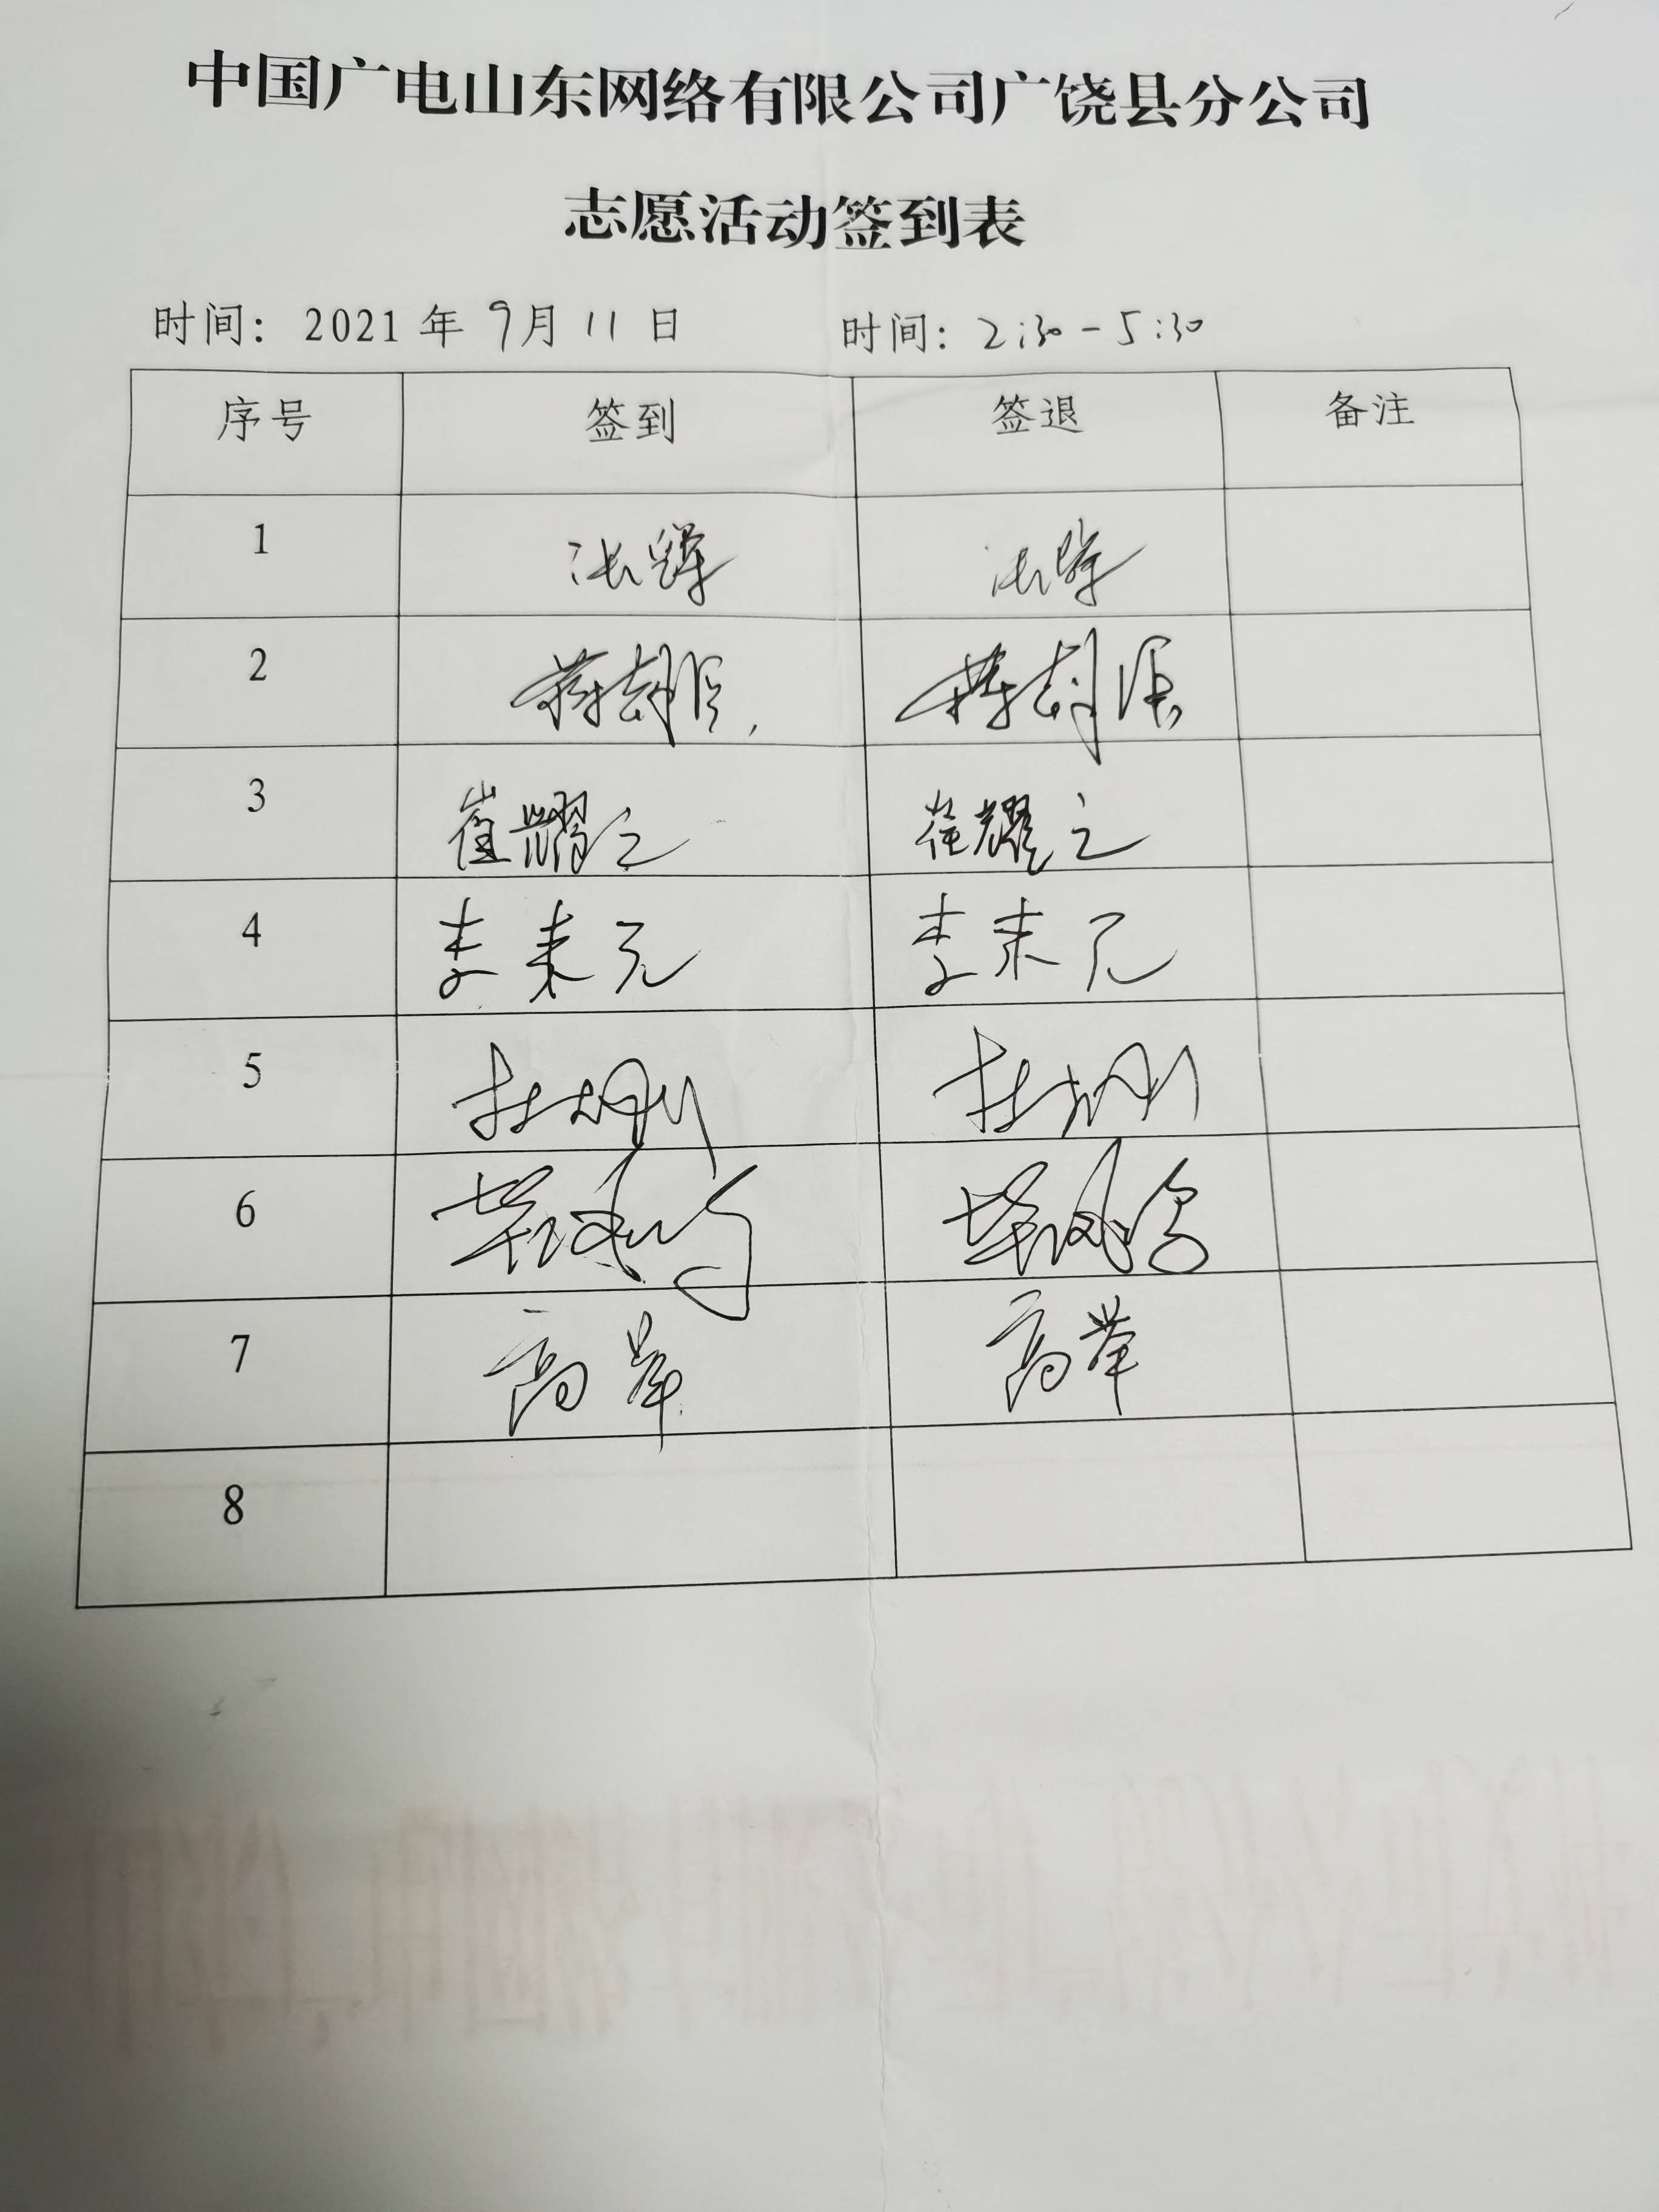 中国广电山东网络有限公司广饶县分公司
志愿活动签到表
时间：2021年9月11日 时间：2:30-5:30
序号 签到 签退 备注
1
2
3 崔耀之 崔耀之
4 李来元 李来元
5 杜刚 杜刚
6
7 高举 高举
8